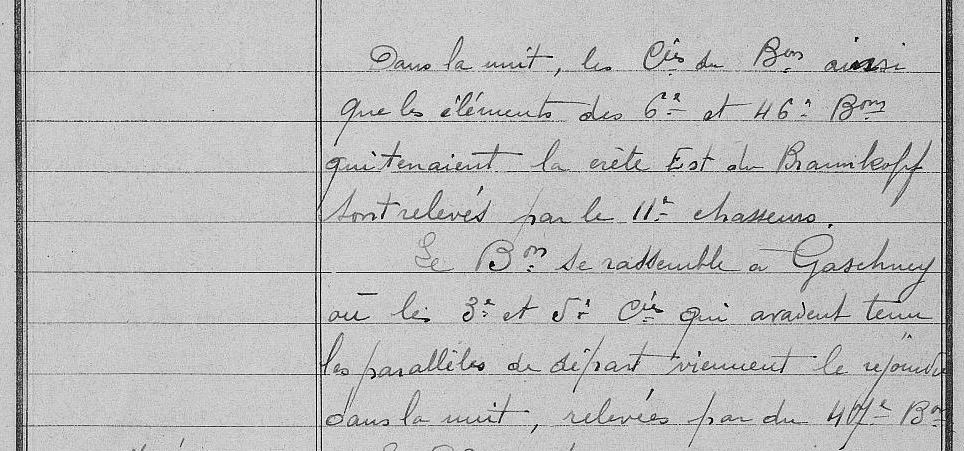 Dans la nuit, les Cies du Bon ainsi
que les éléments des 6e et 46e Bons
qui tenaient la crête Est du Braunkopf
sont relevés par le 11e chasseurs.
Le Bon se rassemble à Gaschney
où les 3e et 5e Cies qui avaient tenu
les parallèles de départ viennent le rejoindre
dans la nuit, relevées par du 47e Bon